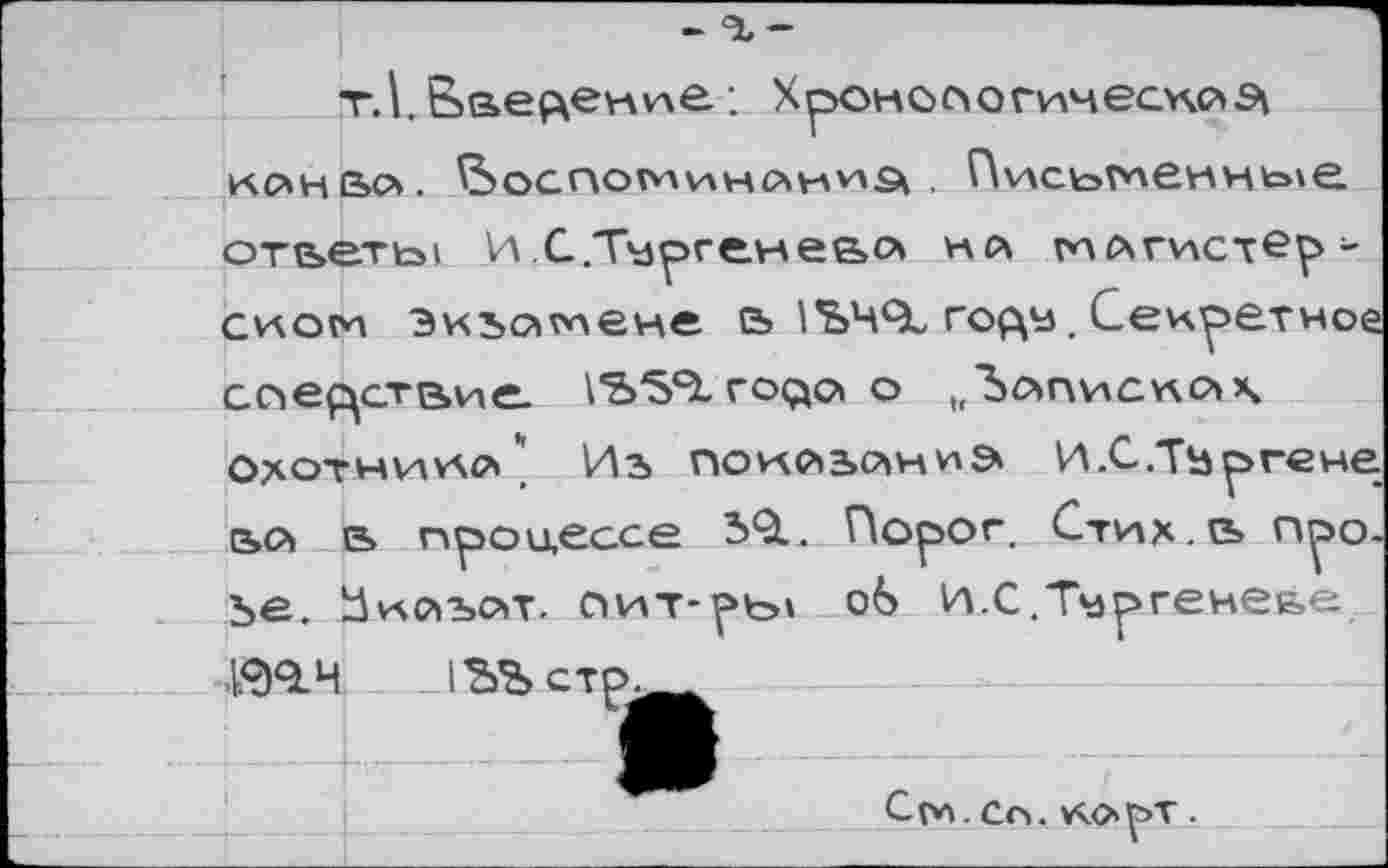 - 2 -
т.1. Введение: Хронологическая
канва. Воспоминания. Письменные
ответы И.С.Тургенева на магистер-
ском экзамене в 1842 году. Секретное
следствие 1852 года о „Записках
охотника". Из показания И.С.Тургене
ва в процессе 32. Порог. Стих. в про-
зе. Указат. лит-ры об И.С.Тургеневе
1924 188 стр.
См. сл. карт.